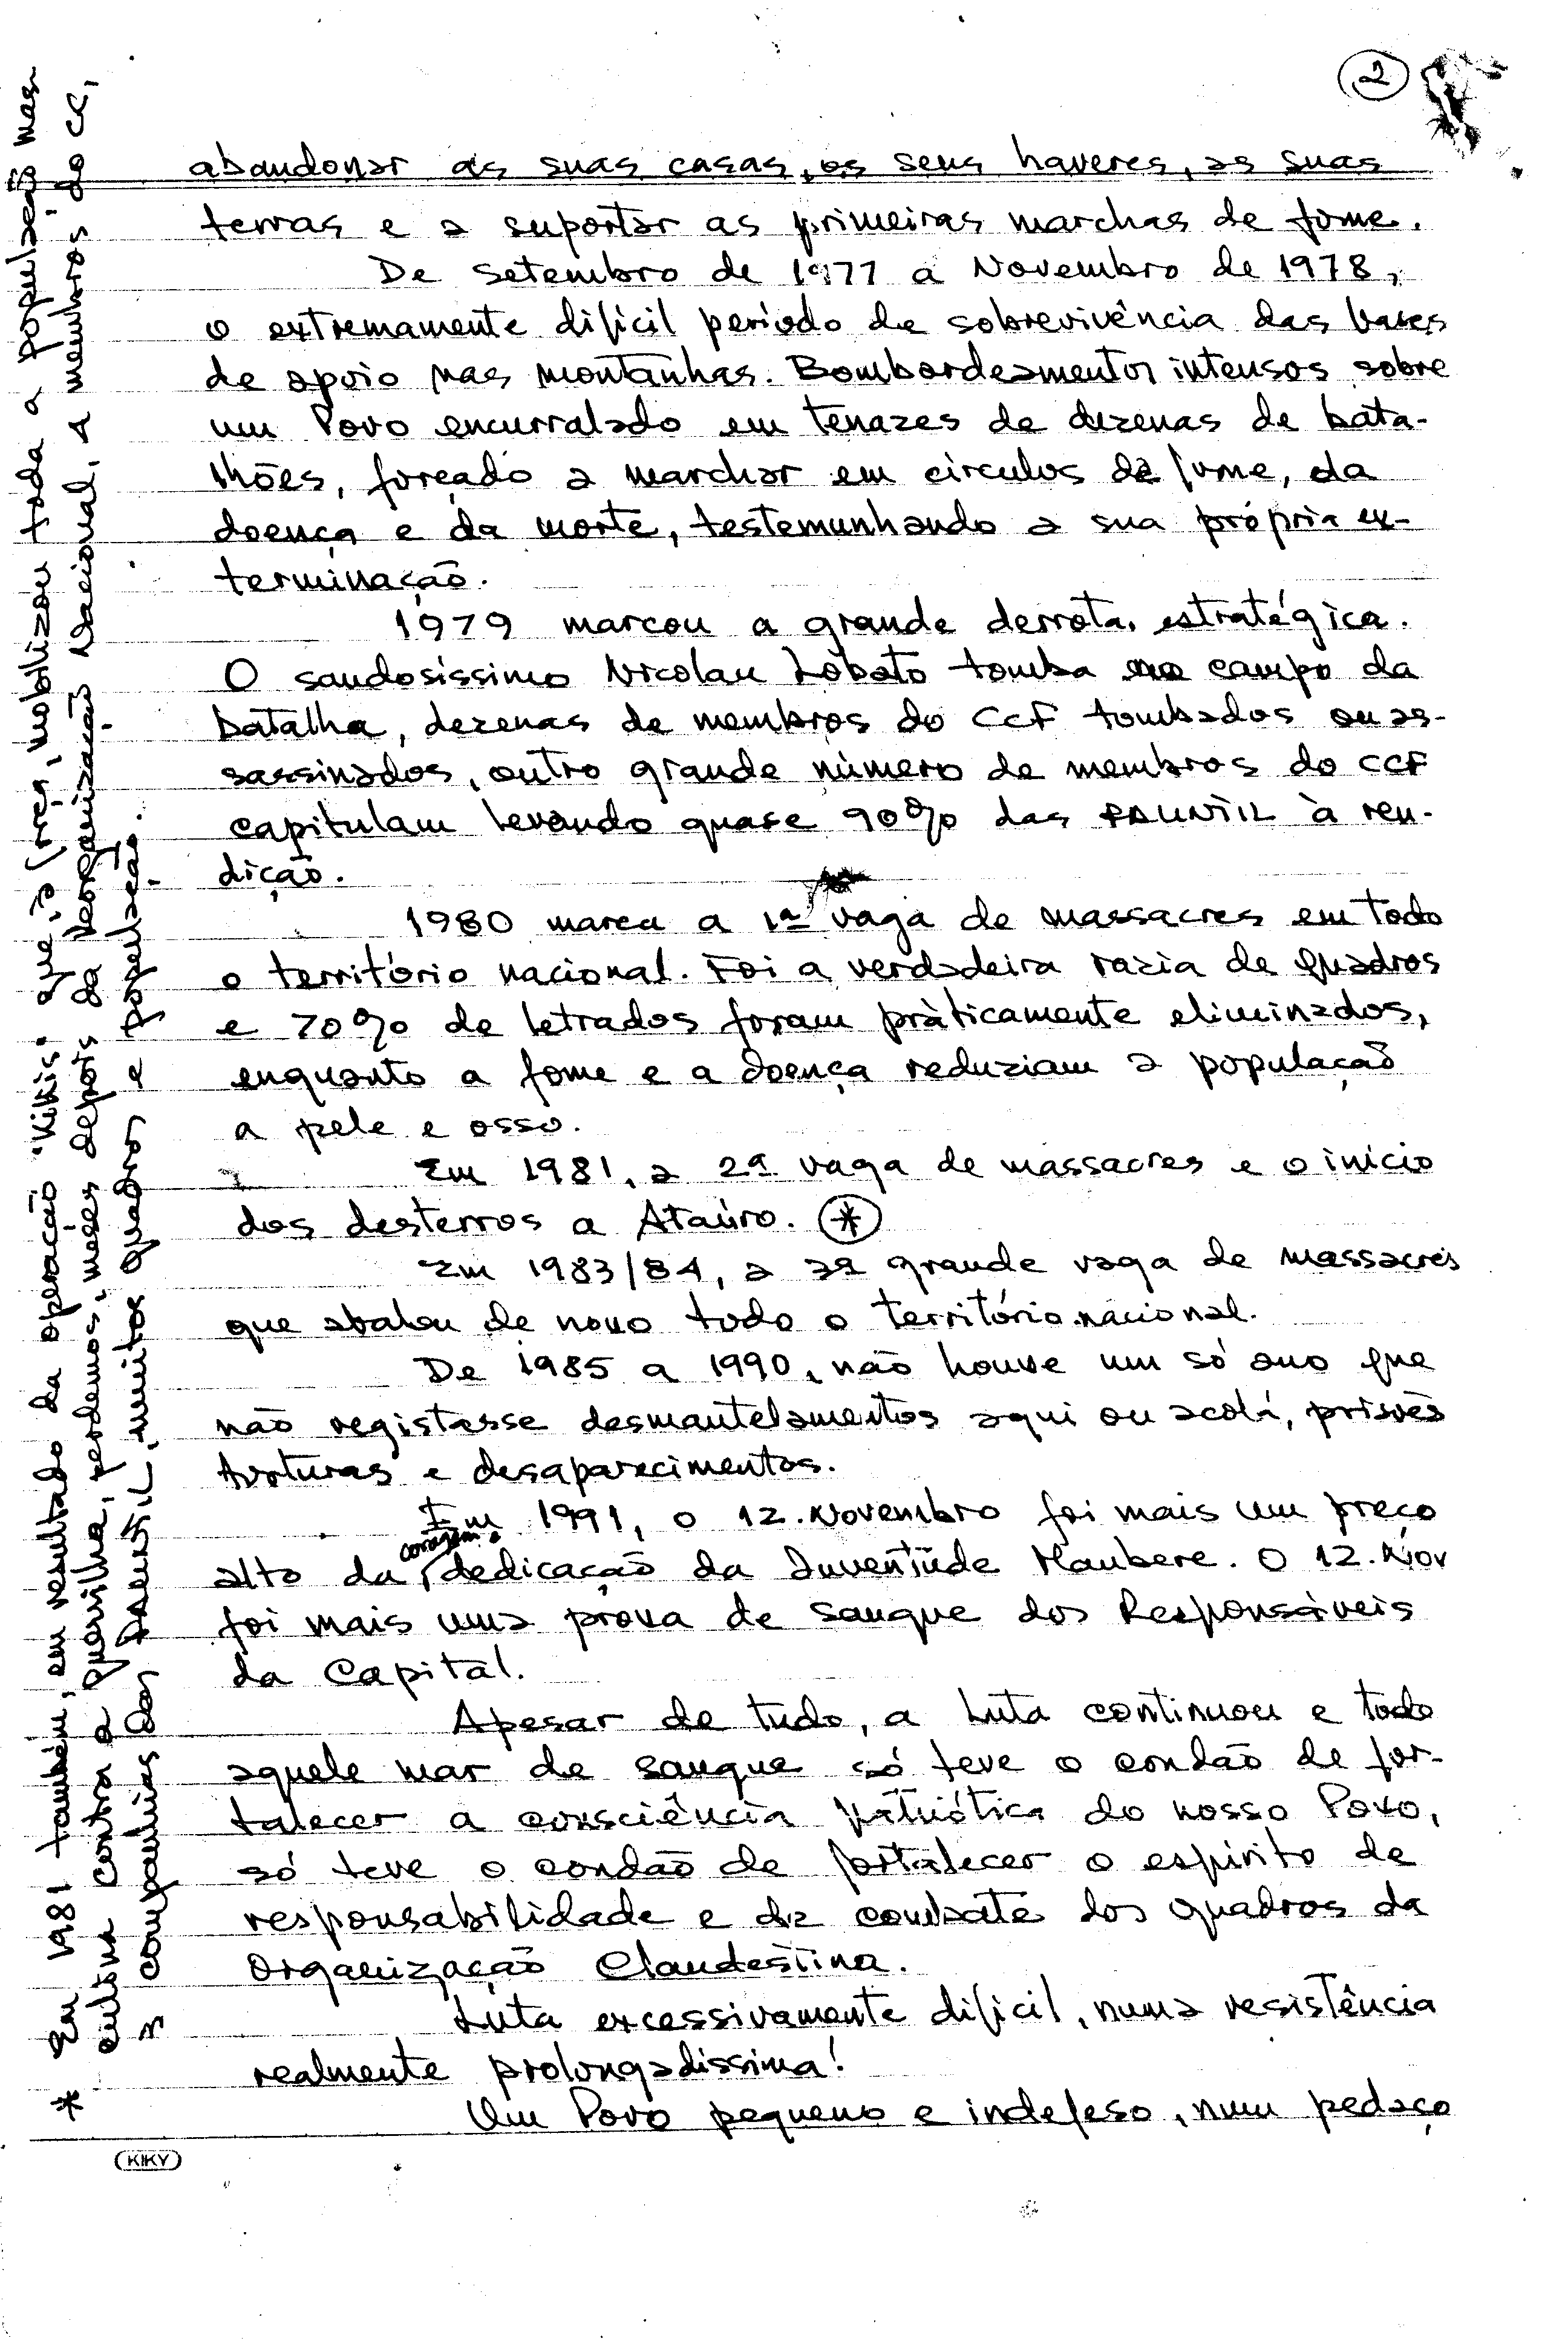 2
abandonar as suas casas, os seus haveres, as suas
terras e a suportar as primeiras marchas de fome.
De Setembro de 1977 a Novembro de 1978,
o extremamente difícil período de sobrevivência das bases
de apoio nas montanhas. Bombardeamentos intensos sobre
um Povo encurralado em tenazes de dezenas de bata-
lhões, forçado a marchar em círculos da fome, da
doença e da morte, testemunhando a sua própria ex-
terminação.
1979 marcou a grande derrota estratégica.
O saudosíssimo Nicolau Lobato tomba no campo da
batalha, dezenas de membros do CCF tombados ou as-
sassinados, outro grande número de membros do CCF
capitulam levando quase 90% das FALINTIL à ren-
dição.
1980 marca a 1ª vaga de massacres em todo
o território nacional. Foi a verdadeira razia de quadros
e 70% de letrados foram pràticamente eliminados,
enquanto a fome e a doença reduziam a população
a pele e osso.
Em 1981, a 2ª vaga de massacres e o início
dos desterros a Ataúro. *
Em 1983/84, a 3ª grande vaga de massacres
que abalou de novo todo o território nacional.
De 1985 a 1990, não houve um só ano que
não registasse desmantelamentos aqui ou acolá, prisões
torturas e desaparecimentos.
Em 1991, o 12. Novembro foi mais um preço
alto da coragem e dedicação da Juventude Maubere. O 12. Nov
foi mais uma prova de sangue dos Responsáveis
da Capital.
Apesar de tudo, a Luta continuou e todo
aquele mar de sangue só teve o condão de for-
talecer a consciência patriótica do nosso Povo,
só teve o condão de fortalecer o espírito de
responsabilidade e de combate dos quadros da
Organização Clandestina.
Luta excessivamente difícil, numa resistência
realmente prolongadíssima!
Um Povo pequeno e indefeso, num pedaço
* Em 1981 também, em resultado da operação "Kikis" que, à mobilizou toda a população mas-
culina contra a guerrilha, perdemos, meses depois da Reorganização Nacional, 4 membros do CC,
3 companhias das FALINTIL, muitos quadros e população.
KIKY